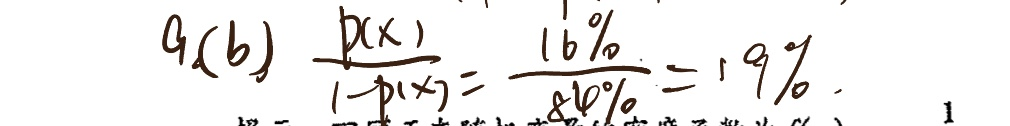 9.(b) p(x)/1-p(x) = 16%/84% = 19%.
1